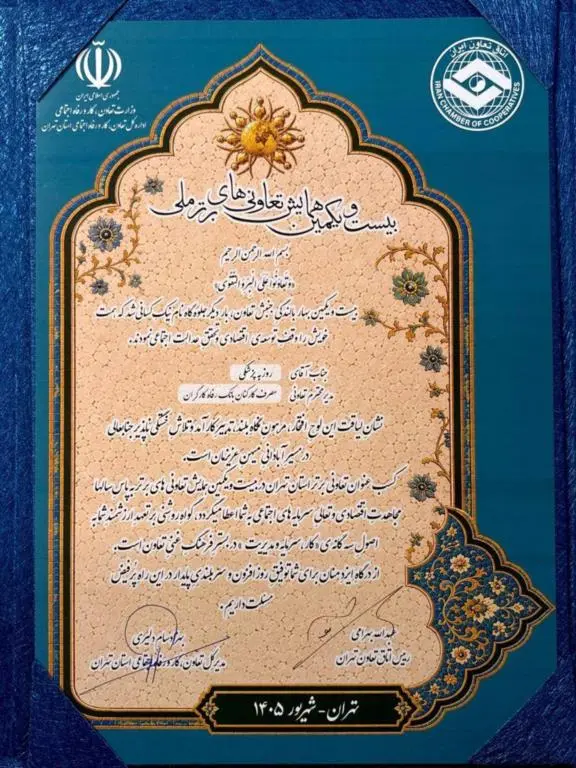 جمهوری اسلامی ایران
وزارت تعاون، کار و رفاه اجتماعی
اداره کل تعاون، کار و رفاه اجتماعی استان تهران
اتاق تعاون ایران
IRAN CHAMBER OF COOPERATIVES
بیست و یکمین همایش تعاونی های برتر ملی
بسم الله الرحمن الرحیم
«وَتَعاوَنُوا عَلَی البِرِّ وَالتَّقوی»
بیست و یکمین بهار بالندگی جنبش تعاون، بار دیگر جلوه گاه نام نیک کسانی شد که همت
خویش را وقف توسعه ی اقتصادی و تحقق عدالت اجتماعی نمودند.
جناب آقای روزبه پزشکی
مدیر محترم تعاونی مصرف کارکنان بانک رفاه کارگران
نشان لیاقت این لوح افتخار، مرهون نگاه بلند، تدبیر کارآمد و تلاش خستگی ناپذیر جنابعالی
در مسیر آبادانی میهن عزیزمان است.
کسب عنوان تعاونی برتر استان تهران در بیست و یکمین همایش تعاونی های برتر به پاس سالها
مجاهدت اقتصادی و تعالی سرمایه های اجتماعی به شما اعطا میگردد، گواه روشنی بر تعهد ارزشمند شما به
اصول سه گانه ی «کار، سرمایه و مدیریت» در بستر فرهنگ غنی تعاون است.
از درگاه ایزد منان برای شما توفیق روزافزون و سربلندی پایدار در این راه پر فیض
مسئلت داریم.
عبدالله بهرامی
رییس اتاق تعاون تهران
بهزاد سام دلیری
مدیرکل تعاون، کار و رفاه اجتماعی استان تهران
تهران - شهریور ۱۴۰۵